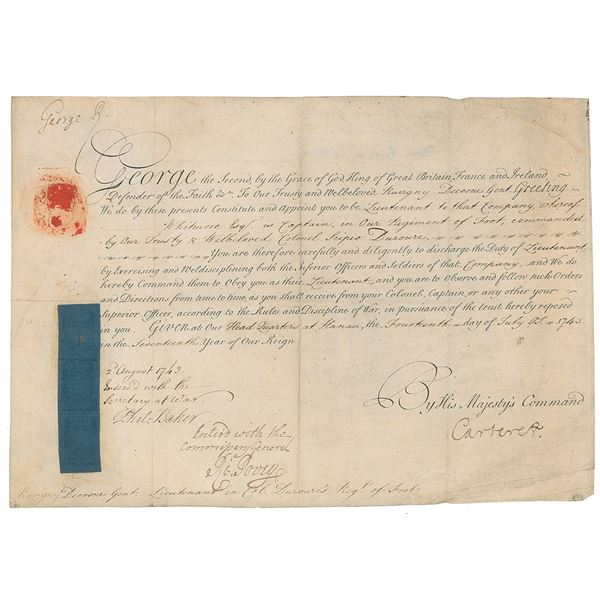 George R.
George the Second, by the Grace of God King of Great Britain, France and Ireland,
Defender of the Faith &c. To Our Trusty and Welbeloved Ruvigny Decosne Gent. Greeting
We do by these presents Constitute and Appoint you to be Lieutenant to that Company, whereof
Whitmore Esqr. is Captain, in Our Regiment of Foot, commanded
by Our Trusty & Welbeloved Colonel Scipio Duroure,
You are therefore carefully and diligently to discharge the Duty of Lieutenant
by Exercising and Welldisciplining both the Inferior Officers and Soldiers of that Company, and We do
hereby Command them to Obey you as their Lieutenant, and you are to Observe and follow such Orders
and Directions from time to time, as you shall receive from your Colonel, Captain, or any other your
Superior Officer, according to the Rules and Discipline of War, in pursuance of the trust hereby reposed
in you. Given at Our Head Quarters at Hanau, the Fourteenth day of July 1743.
in the Seventeenth Year of Our Reign
2d. August 1743
Enter'd with the
Secretary at War.
Phil: Baker
Enter'd with the
Commissary General
By His Majesty's Command
Carteret.
Ruvigny Decosne Gent. Lieutenant in Col. Duroure's Regt. of Foot